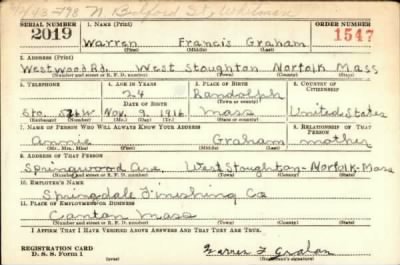 SERIAL NUMBER
1. NAME (Print)
ORDER NUMBER
2019
Warren Francis Graham
1547
(First) (Middle) (Last)
2. ADDRESS (Print)
Westwood Rd. West Stoughton Norfolk Mass
(Number and street or R. F. D. number) (Town) (County) (State)
3. TELEPHONE
4. AGE IN YEARS
5. PLACE OF BIRTH
6. COUNTRY OF CITIZENSHIP
24
Randolph
DATE OF BIRTH
(Town or county)
Sto. Nov. 9, 1916
Mass
United States
(Exchange) (Number) (Mo.) (Day) (Yr.) (State or country)
7. NAME OF PERSON WHO WILL ALWAYS KNOW YOUR ADDRESS
8. RELATIONSHIP OF THAT PERSON
Annie Graham mother
(Mr., Mrs., Miss) (First) (Middle) (Last)
9. ADDRESS OF THAT PERSON
Springwood Ave. West Stoughton-Norfolk-Mass
(Number and street or R. F. D. number) (Town) (County) (State)
10. EMPLOYER'S NAME
Springdale Finishing Co
11. PLACE OF EMPLOYMENT OR BUSINESS
Canton Mass
(Number and street or R. F. D. number) (Town) (County) (State)
I AFFIRM THAT I HAVE VERIFIED ABOVE ANSWERS AND THAT THEY ARE TRUE.
REGISTRATION CARD
D. S. S. Form 1
Warren F Graham
(over)
(Registrant's signature)